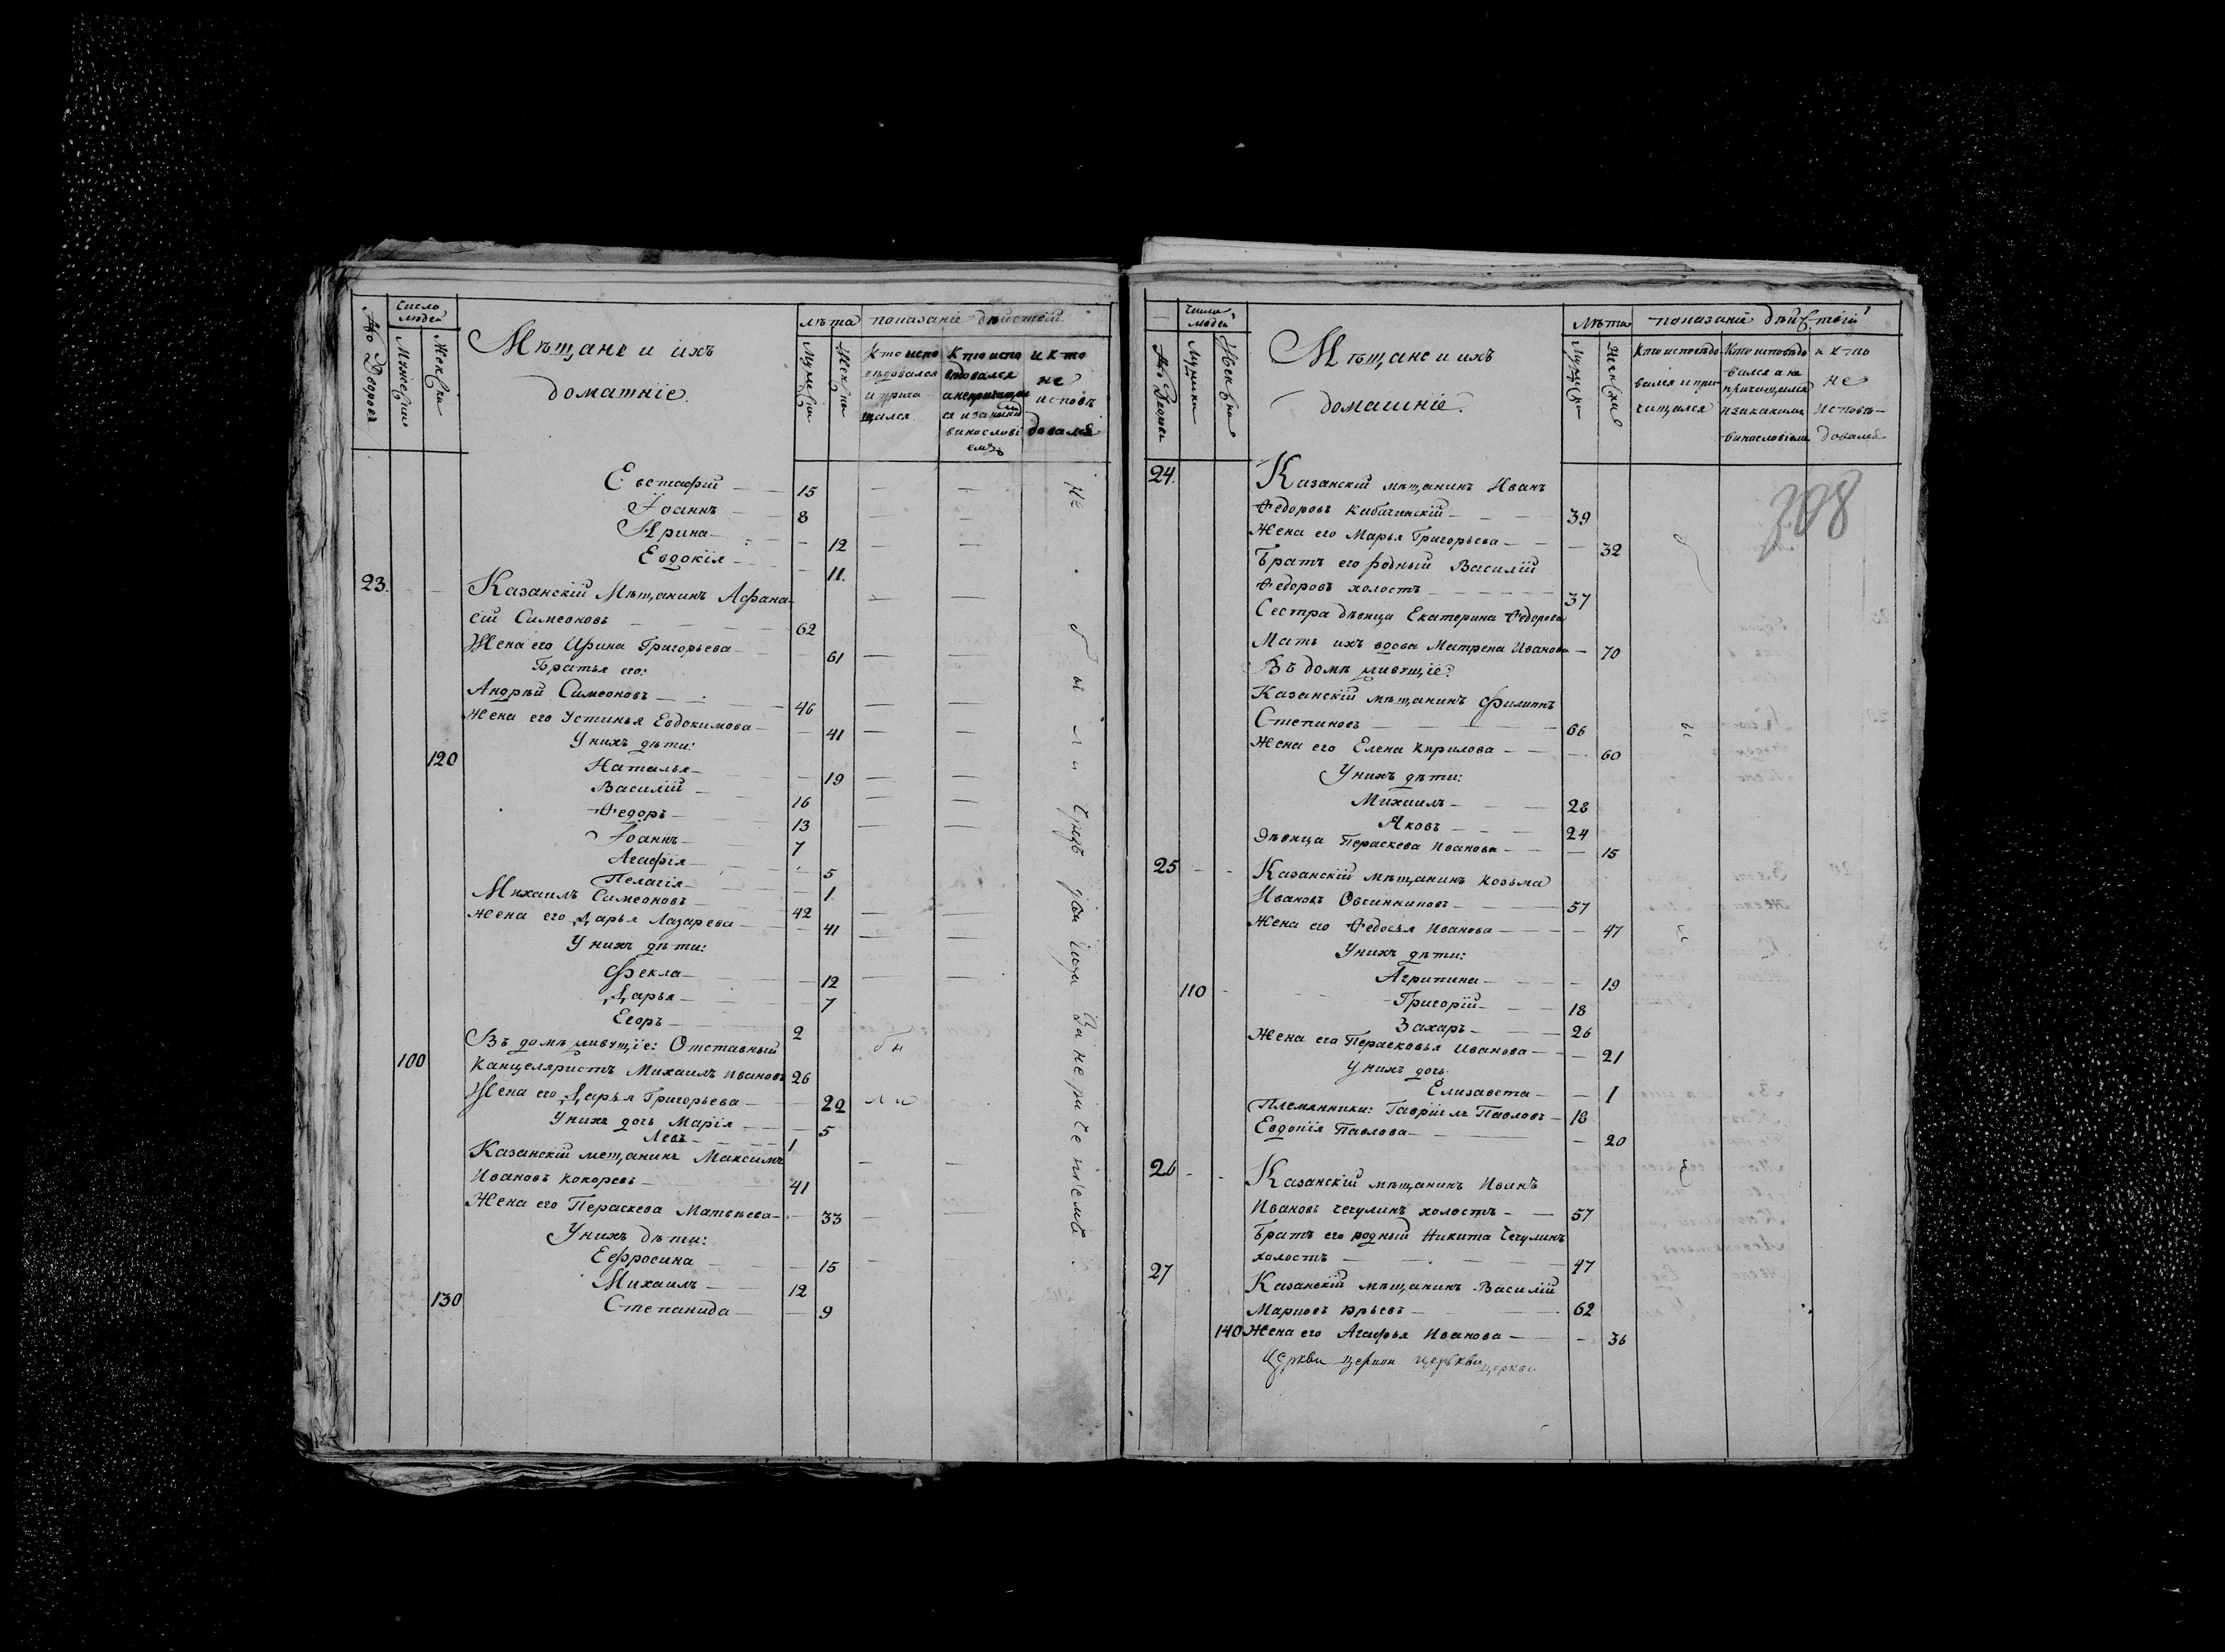 Число людей
Лѣта
показаніе дѣйствій
Мѣщане и ихъ
домашніе.
Кто испо
вѣдовался
и прича
щался
Кто испо
вѣдовался
винословi
емъ
и кто
не
исповѣ
довался
Евстафiй 15
Іоаннъ 8
Ирина 12
Евдокія 11.
23. Казанскій Мѣщанинъ Афана-
сій Симеоновъ 62
Жена его Ирина Григорьева 61
Братья его:
Андрѣй Симеоновъ 46
Жена его Устинья Евдокимова 41
У нихъ дѣти:
120 Наталья 19
Василій 16
Ѳедоръ 13
Іоаннъ 7
Агафія 5
Пелагія 1
Михаилъ Симеоновъ 42
Жена его Дарья Лазарева 41
У нихъ дѣти:
Фекла 12
Дарья 7
Егоръ 2
Въ домѣ живущіе: Отставный
100 Канцеляристъ Михаилъ Ивановъ 26
Жена его Дарья Григорьева 22
У нихъ дочь Марія 5
Левъ 1
Казанскій мещанинъ Максимъ
Ивановъ Кокоревъ 41
Жена его Пераскева Матвѣева 33
У нихъ дѣти:
Ефросина 15
Михаилъ 12
130 Степанида 9
Не были
были
Число людей
Лѣта
показаніе дѣйствій
Мѣщане и ихъ
домашніе.
Кто исповѣдо
вался и при
чащался
Кто исповѣдо
вался а не
причащался
винословіемъ
и кто
не
исповѣ-
довался
24. Казанскій мѣщанинъ Иванъ
Ѳедоровъ 39
Жена его Марья Григорьева 32
Братъ его родный Василій
Ѳедоровъ холостъ 37
Сестра дѣвица Екатерина Ѳедорова
Мать ихъ вдова Матрена Иванова 70
Въ домѣ живущіе:
Казанскій мѣщанинъ Филиппъ
Степановъ 66
Жена его Елена Кирилова 60
У нихъ дѣти:
Михаилъ 28
Яковъ 24
Дѣвица Пераскева Иванова 15
25 Казанскій мѣщанинъ Козьма
Ивановъ Овчинниковъ 57
Жена его Ѳедосья Иванова 47
У нихъ дѣти:
Агрипина 19
110 Григорій 18
Захаръ 26
Жена его Перасковья Иванова 21
У нихъ дочь
Елизавета 1
Племянники: Гавріилъ Павловъ 18
Евдокія Павлова 20
26 Казанскій мѣщанинъ Иванъ
Ивановъ Чечулинъ холостъ 57
Братъ его родный Никита Чечулинъ
холостъ 47
27 Казанскій мѣщанинъ Василій
Марковъ Юрьевъ 62
140 Жена его Агафья Иванова 36
Церкви церкви церькви церкви